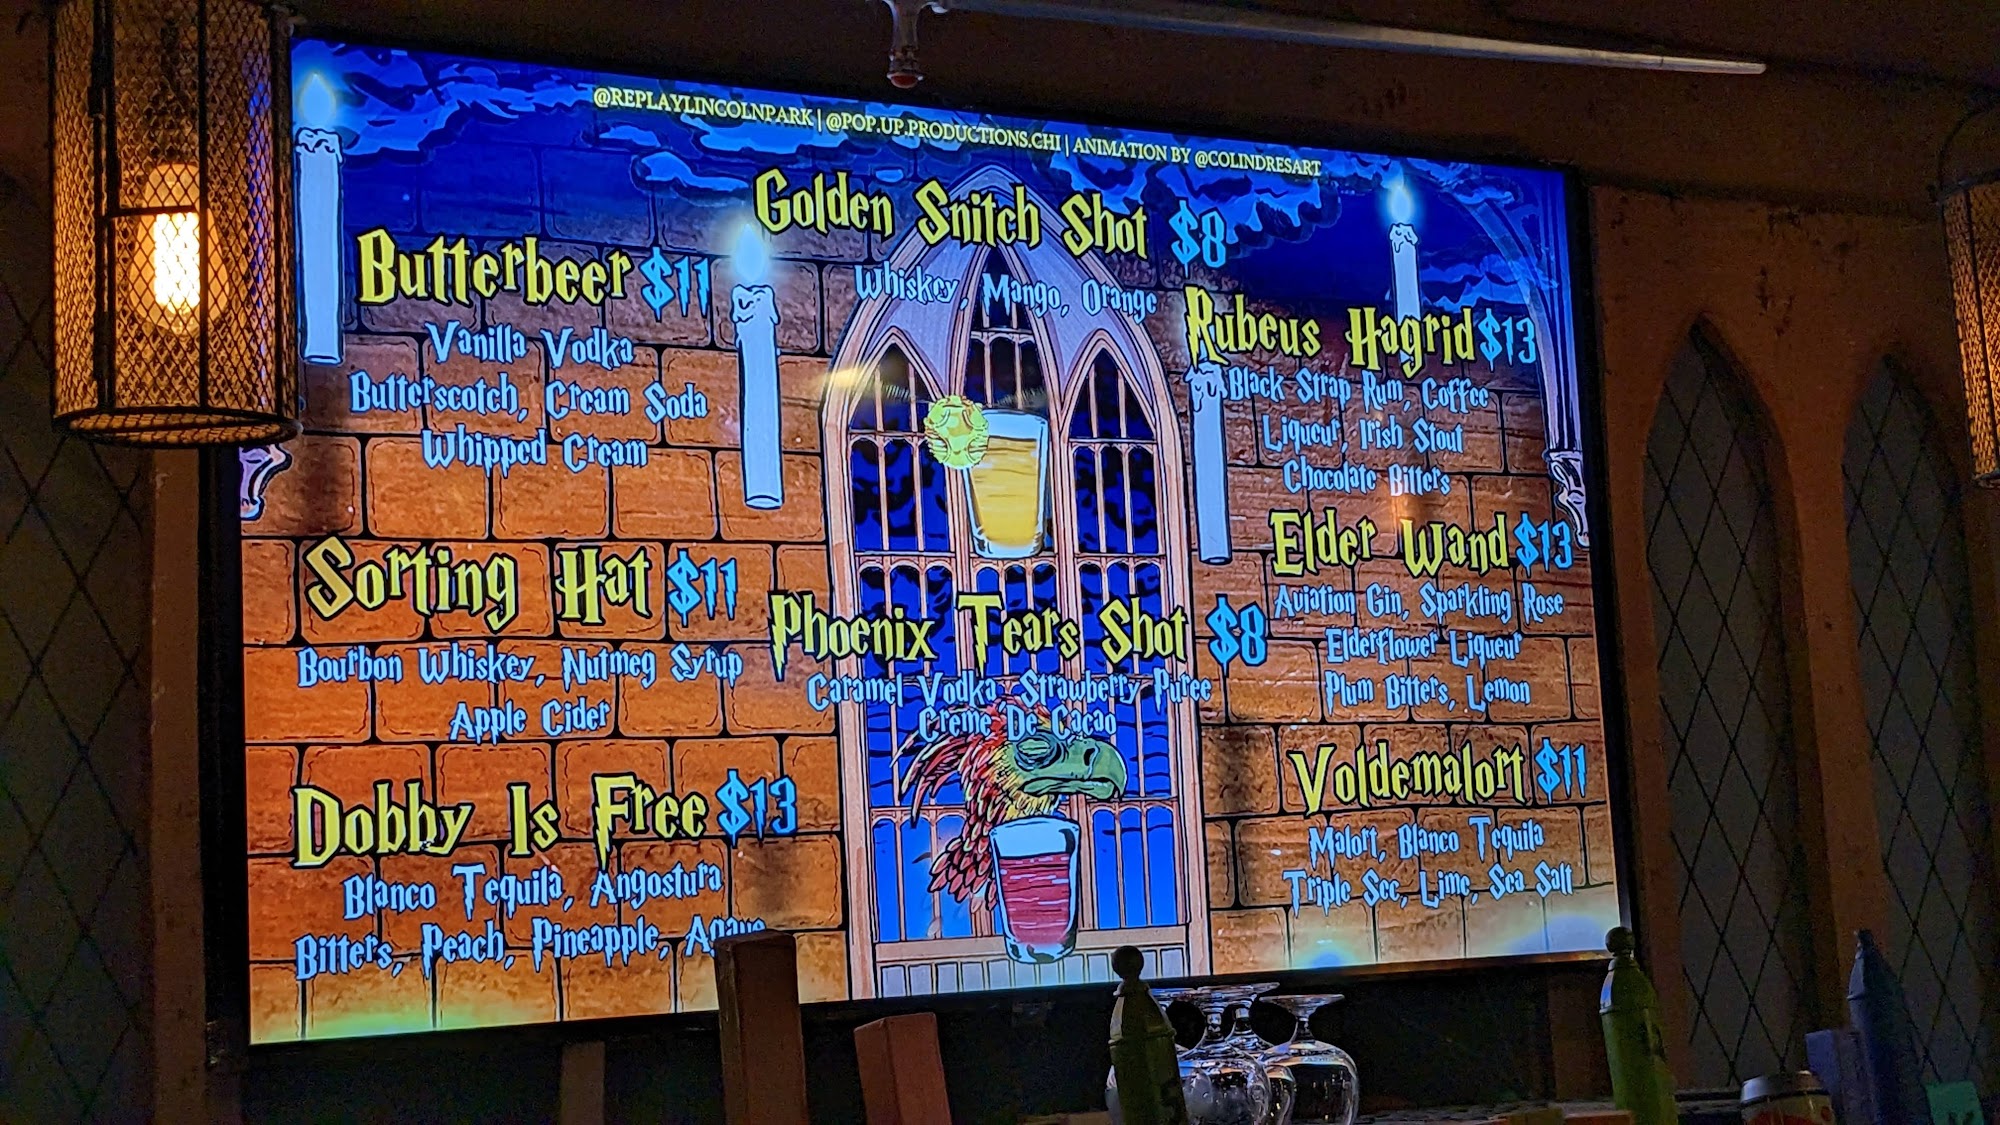 @REPLAYLINCOLNPARK | @POP.UP.PRODUCTIONS.CHI | ANIMATION BY @COLINDRESART
Golden Snitch Shot $8
Whiskey, Mango, Orange
Butterbeer $11
Vanilla Vodka
Butterscotch, Cream Soda
Whipped Cream
Sorting Hat $11
Bourbon Whiskey, Nutmeg Syrup
Apple Cider
Dobby Is Free $13
Blanco Tequila, Angostura
Bitters, Peach, Pineapple, Agave
Phoenix Tears Shot $8
Caramel Vodka, Strawberry Puree
Creme De Cacao
Rubeus Hagrid $13
Black Strap Rum, Coffee
Liqueur, Irish Stout
Chocolate Bitters
Elder Wand $13
Aviation Gin, Sparkling Rose
Elderflower Liqueur
Plum Bitters, Lemon
Voldemalort $11
Malort, Blanco Tequila
Triple Sec, Lime, Sea Salt